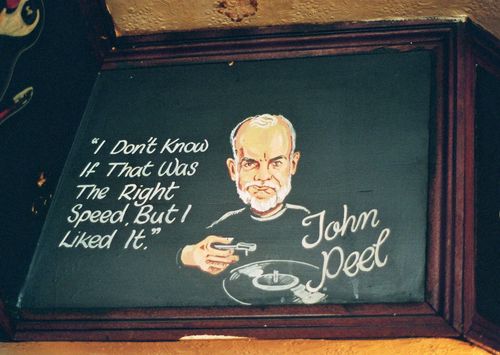 "I Don't Know
If That Was
The Right
Speed, But I
Liked It."
John
Peel